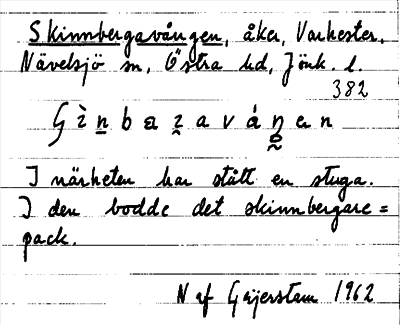 Skinnbergavången, åker, Varkester,
Nävelsjö sn, Östra hd, Jönk. l.
382
I närheten har stått en stuga.
I den bodde det skinnbergare=
pack.
N af Geijerstam 1962